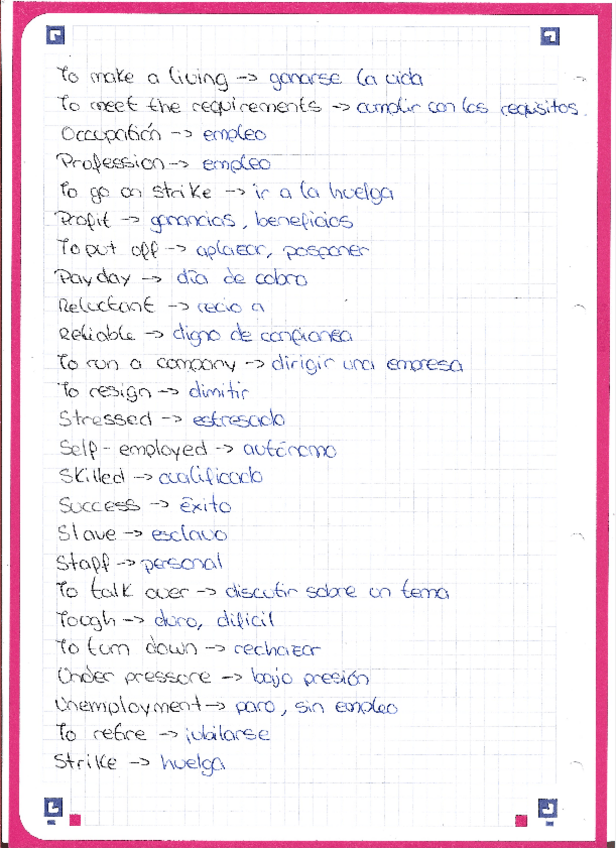 To make a living -> ganarse la vida
To meet the requirements -> cumplir con los requisitos.
Occupatión -> empleo
Profession -> empleo
To go on strike -> ir a la huelga
Profit -> ganancias, beneficios
To put off -> aplazar, posponer
Pay day -> día de cobro
Reluctant -> recio a
Reliable -> digno de confianza
To run a company -> dirigir una empresa
To resign -> dimitir
Stressed -> estresado
Self-employed -> autónomo
Skilled -> cualificado
Success -> éxito
Slave -> esclavo
Staff -> personal
To talk over -> discutir sobre un tema
Tough -> duro, difícil
To turn down -> rechazar
Under pressure -> bajo presión
Unemployment -> paro, sin empleo
To retire -> jubilarse
Strike -> huelga